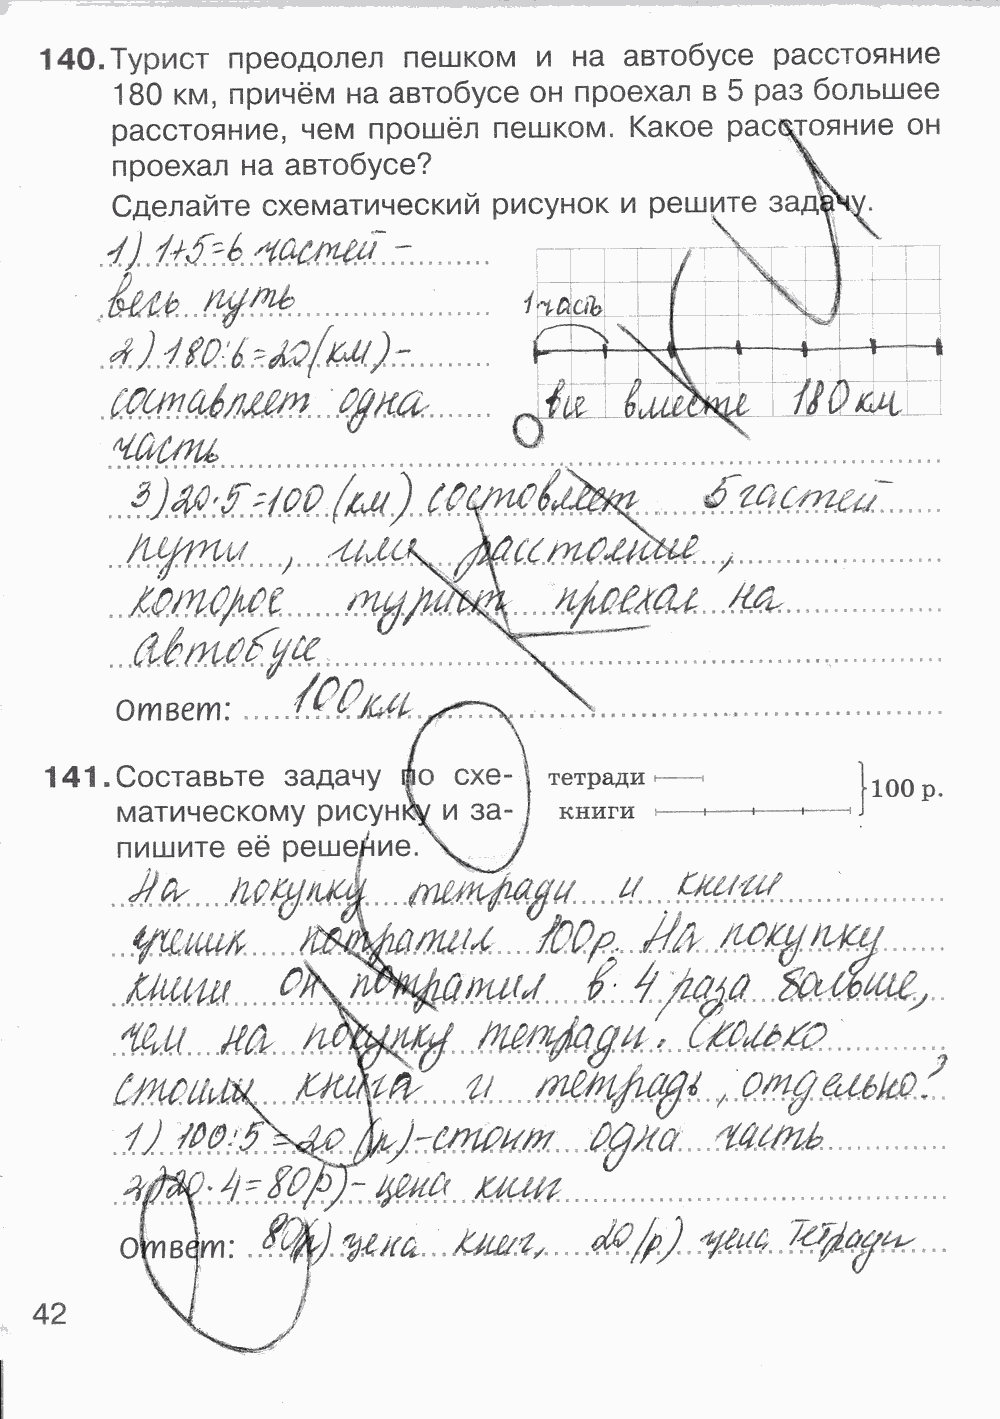 140. Турист преодолел пешком и на автобусе расстояние
180 км, причём на автобусе он проехал в 5 раз большее
расстояние, чем прошёл пешком. Какое расстояние он
проехал на автобусе?
Сделайте схематический рисунок и решите задачу.
1) 1+5=6 частей –
весь путь
2) 180:6=20(км) –
составляет одна
часть
1 часть
все вместе 180 км
3) 20·5=100 (км) состовляет 5 частей
пути, или расстояние,
которое турист проехал на
автобусе
Ответ: 100 км
141. Составьте задачу по схе-
матическому рисунку и за-
пишите её решение.
тетради
книги
100 р.
На покупку тетради и книги
ученик потратил 100р. На покупку
книги он потратил в 4 раза больше,
чем на покупку тетради. Сколько
стоили книга и тетрадь, отдельно?
1) 100:5=20 (р)-стоит одна часть
2) 20·4=80(р)- цена книг
Ответ: 80(р) цена книг, 20(р) цена тетради
42